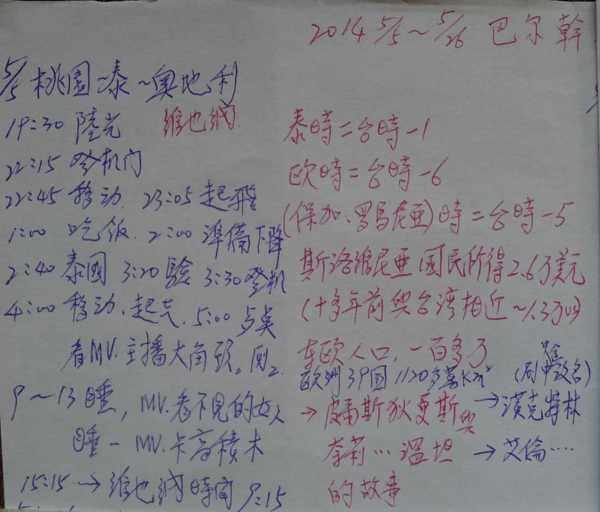 2014 5/5~5/26 巴尔幹
5/5 桃園-泰~奥地利
維也納
19:30 陸光
22:15 登机门
22:45 移动. 23:05 起飛
1:00 吃饭. 2:00 準備下降
2:40 泰國 3:20 驗 3:30 登机
4:00 移动. 起飞. 5:00 点
看MV. 主播大角頭。
9~13睡, MV. 看不見的女人
睡-MV. 卡高積木
15:15→維也納時間 9:15
泰時=台時-1
欧時=台時-6
(保加、罗馬尼亜)時=台時-5
斯洛維尼亜国民所得2.6万美元
(十多年前與台湾相近~1.3万)
东欧人口,一百多万
欧洲39国 1120多萬Km²
→皮爾斯狄曼斯與 →漢克特林
李莉…温坦 →艾倫…
的故事